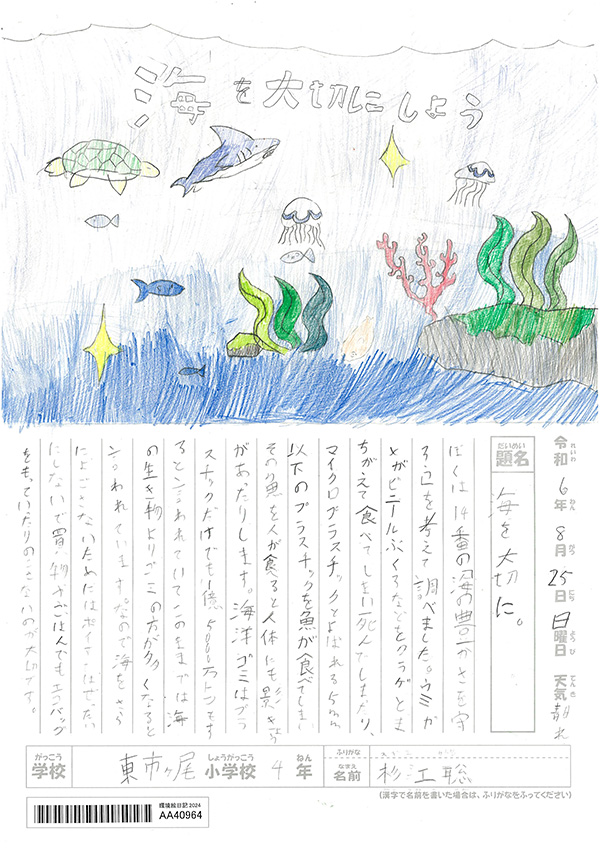 海を大切にしよう
令和6年8月25日日曜日 天気 晴れ
れいわ ねん がつ にち ようび てんき
だいめい
題名
海を大切に。
ぼくは14番の海の豊かさを守
ろうを考えて調べました。ウミガ
メがビニールぶくろなどをクラゲとま
ちがえて食べてしまい死んでしまたり、
マイクロプラスチックとよばれる5mm
以下のプラスチックを魚が食べてしまい
その魚を人が食ると人体にも影きょう
があったりします。海洋ゴミはプラ
スチックだけでも1億5000万トンです
ると言われていてこのままでは海
の生き物よりゴミの方が多くなると
言われています。なので海をさら
によごさないためにはポイすてはぜったい
にしないで買い物やごはんでもエコバッグ
をもっていたりのこさないのが大切です。
がっこう しょうがっこう ねん ふりがな
学校 東市ヶ尾 小学校 4年
なまえ
名前 杉江聡
(漢字で名前を書いた場合は、ふりがなをふってください)
環境絵日記2024
AA40964